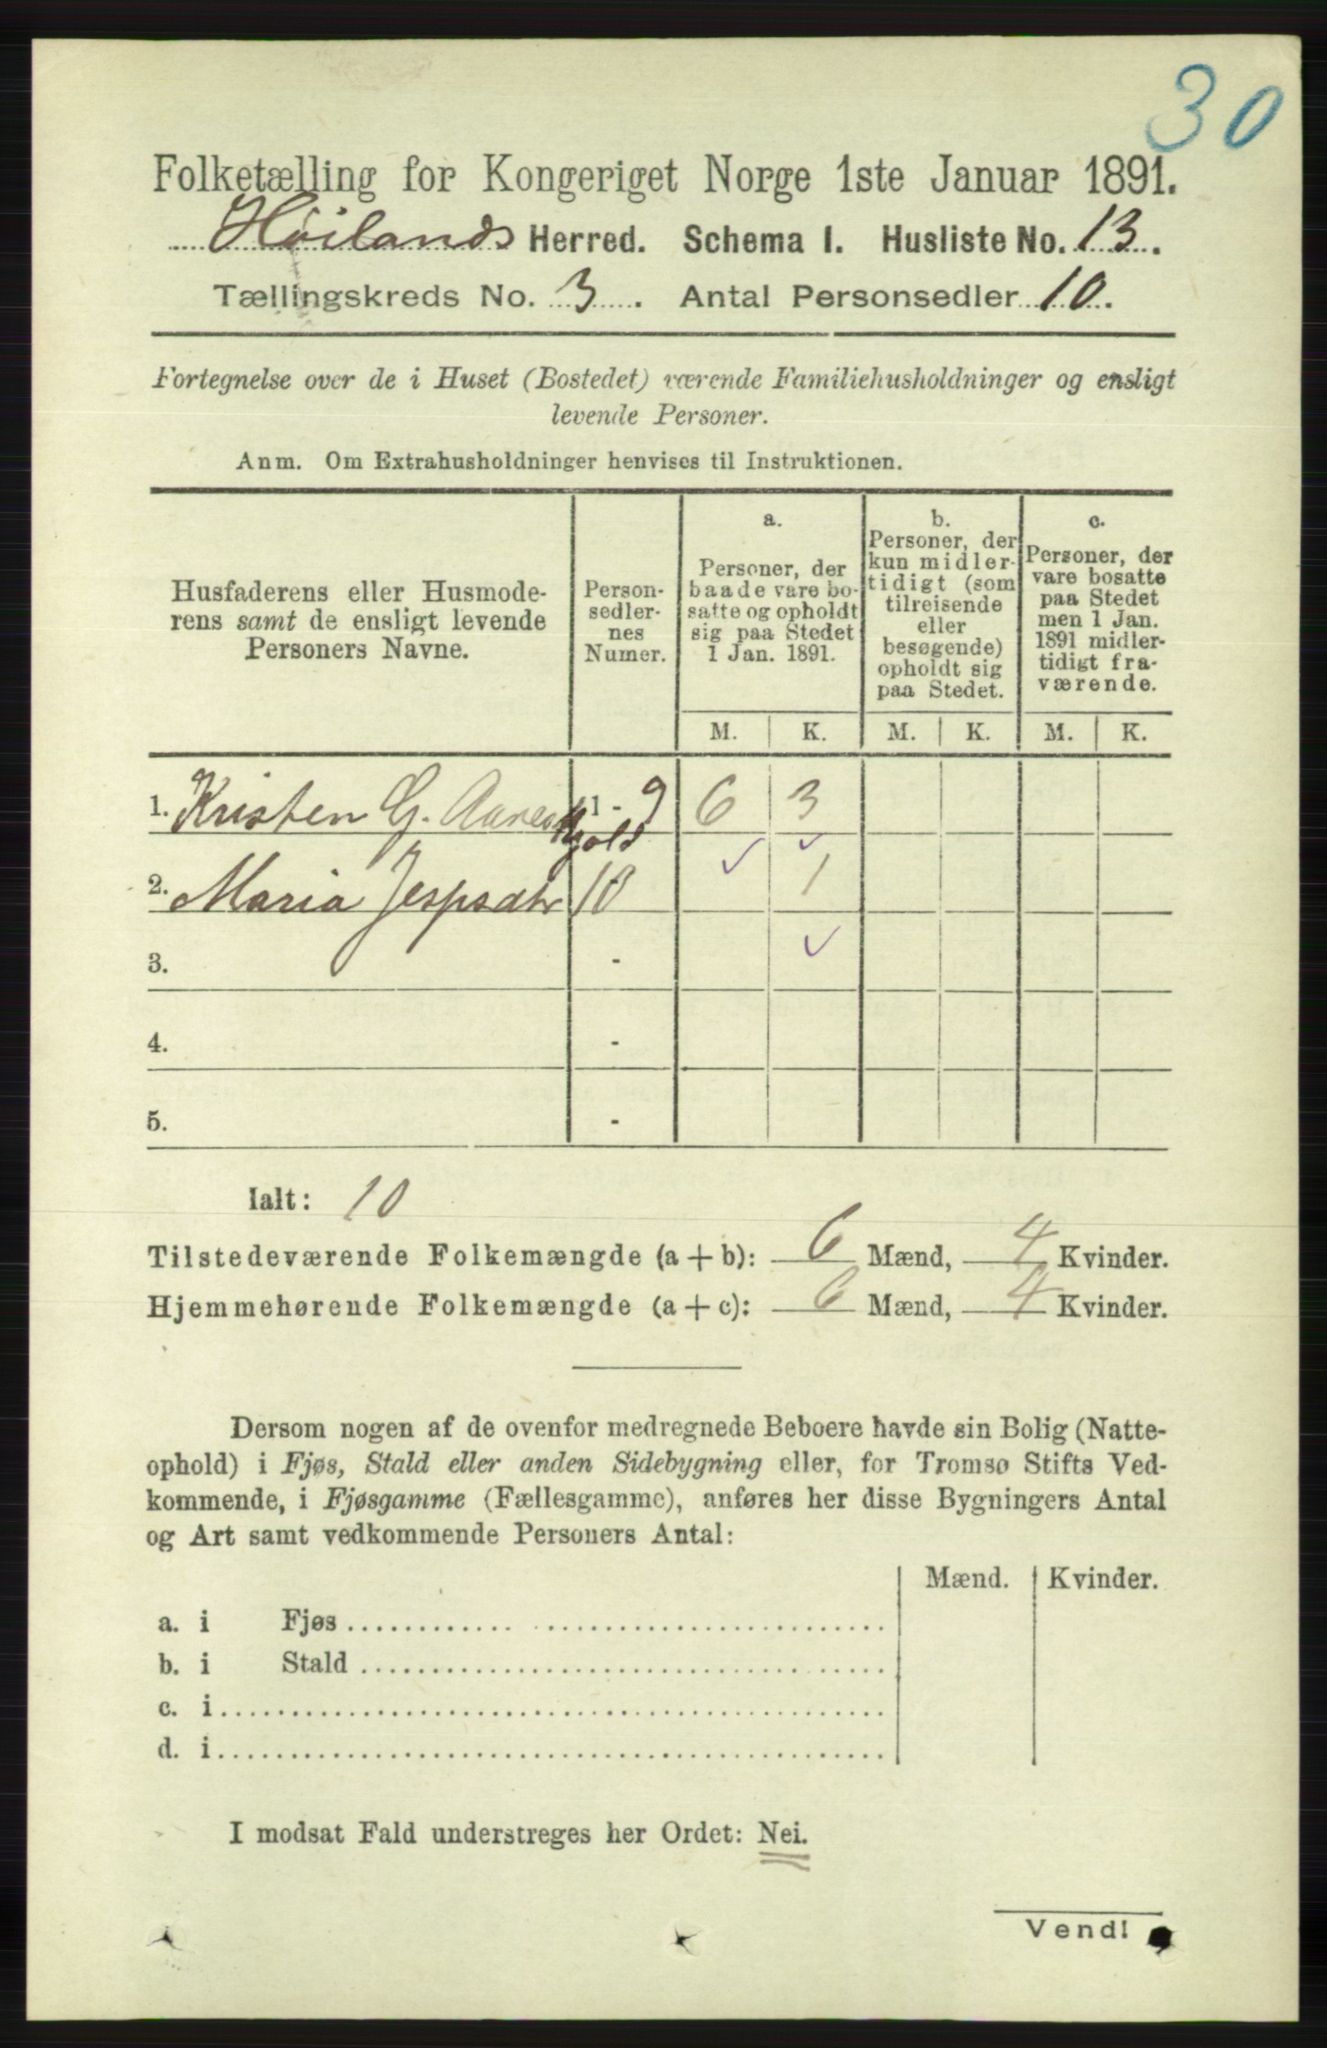 30
Folketælling for Kongeriget Norge 1ste Januar 1891.
Höilands Herred. Schema I. Husliste No. 13.
Tællingskreds No. 3. Antal Personsedler 10.
Fortegnelse over de i Huset (Bostedet) værende Familiehusholdninger og ensligt
levende Personer.
Anm. Om Extrahusholdninger henvises til Instruktionen.
Husfaderens eller Husmode-
rens samt de ensligt levende
Personers Navne.
Person-
sedler-
nes
Numer.
a.
Personer, der
baade vare bo-
satte og opholdt
sig paa Stedet
1 Jan. 1891.
b.
Personer, der
kun midler-
tidigt (som
tilreisende
eller
besøgende)
opholdt sig
paa Stedet.
c.
Personer, der
vare bosatte
paa Stedet
men 1 Jan.
1891 midler-
tidigt fra-
værende.
M. K. M. K. M. K.
1. Kristen G. Aanestkjold 1 - 9 6 3
2. Maria Jespsdtr 10 1
3. -
4. -
5. -
Ialt: 10
Tilstedeværende Folkemængde (a + b): 6 Mænd, 4 Kvinder.
Hjemmehørende Folkemængde (a + c): 6 Mænd, 4 Kvinder.
Dersom nogen af de ovenfor medregnede Beboere havde sin Bolig (Natte-
ophold) i Fjøs, Stald eller anden Sidebygning eller, for Tromsø Stifts Ved-
kommende, i Fjøsgamme (Fællesgamme), anføres her disse Bygningers Antal
og Art samt vedkommende Personers Antal:
Mænd. Kvinder.
a. i Fjøs
b. i Stald
c. i
d. i
I modsat Fald understreges her Ordet: Nei.
Vend!